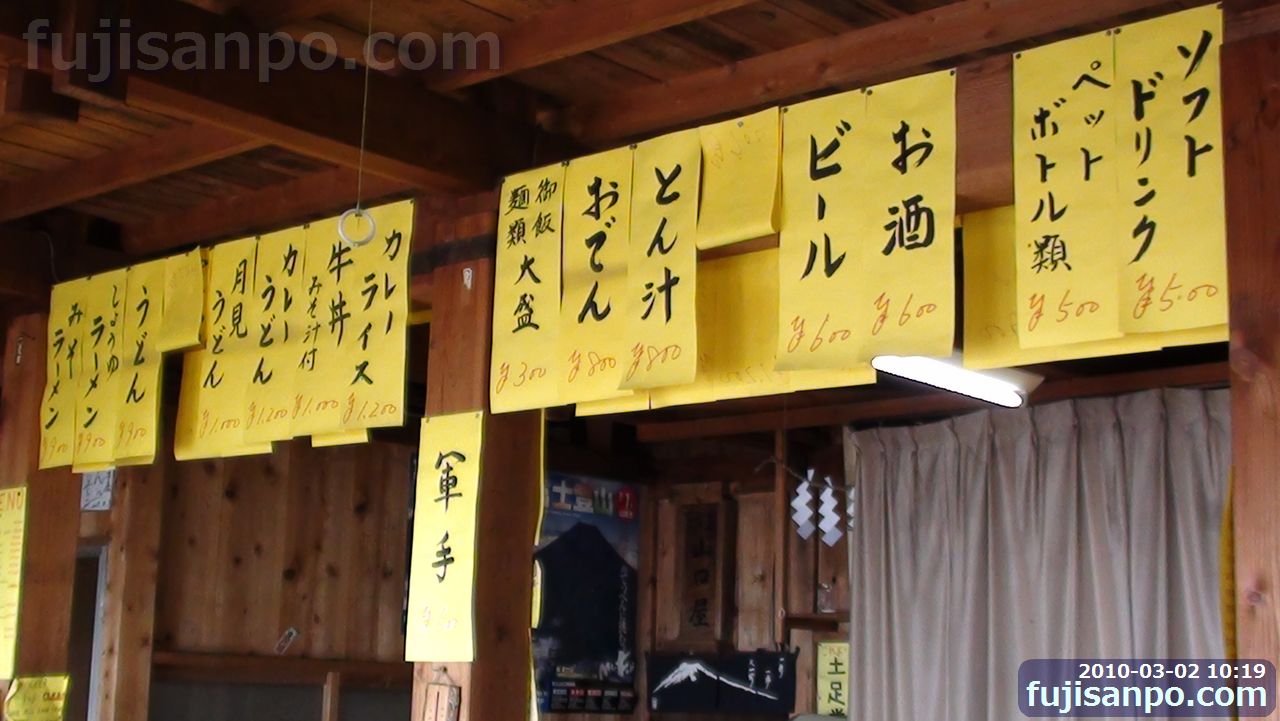 fujisanpo.com
ソフト
ドリンク
¥500
ペット
ボトル類
¥500
お酒
¥600
ビール
¥600
とん汁
¥800
おでん
¥800
御飯
麺類
大盛
¥300
カレー
ライス
¥1.200
牛丼
みそ汁付
¥1.000
カレー
うどん
¥1.200
月見
うどん
¥1.000
うどん
¥900
しょうゆ
ラーメン
¥900
みそ
ラーメン
¥900
軍手
士登山
山口屋
土足
2010-03-02 10:19
fujisanpo.com